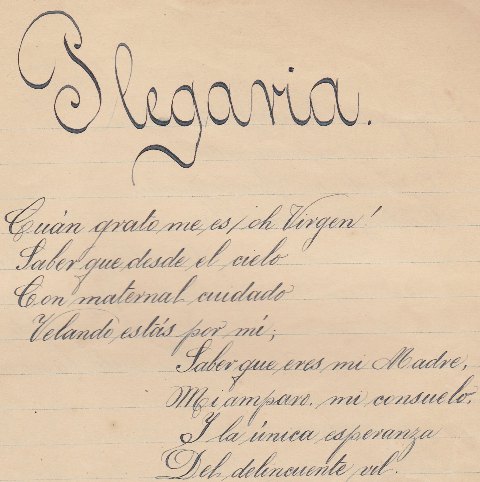 Plegaria.
Cuán grato me es ¡oh Virgen!
Saber que desde el cielo
Con maternal cuidado
Velando estás por mí;
Saber que eres mi Madre,
Mi amparo, mi consuelo,
Y la única esperanza
Del delincuente vil.